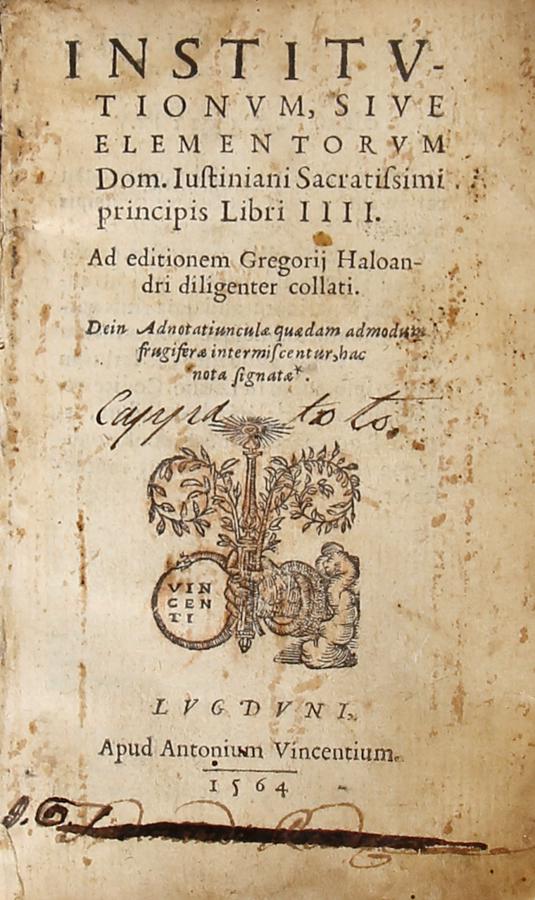 INSTITV-
TIONVM, SIVE
ELEMENTORVM
Dom. Iuſtiniani Sacratiſsimi
principis Libri IIII.
Ad editionem Gregorij Haloan-
dri diligenter collati.
Dein Adnotatiunculæ quædam admodum
frugiferæ intermiſcentur, hac
nota ſignatæ*.
VIN
CEN
TI
LVGDVNI,
Apud Antonium Vincentium.
1564